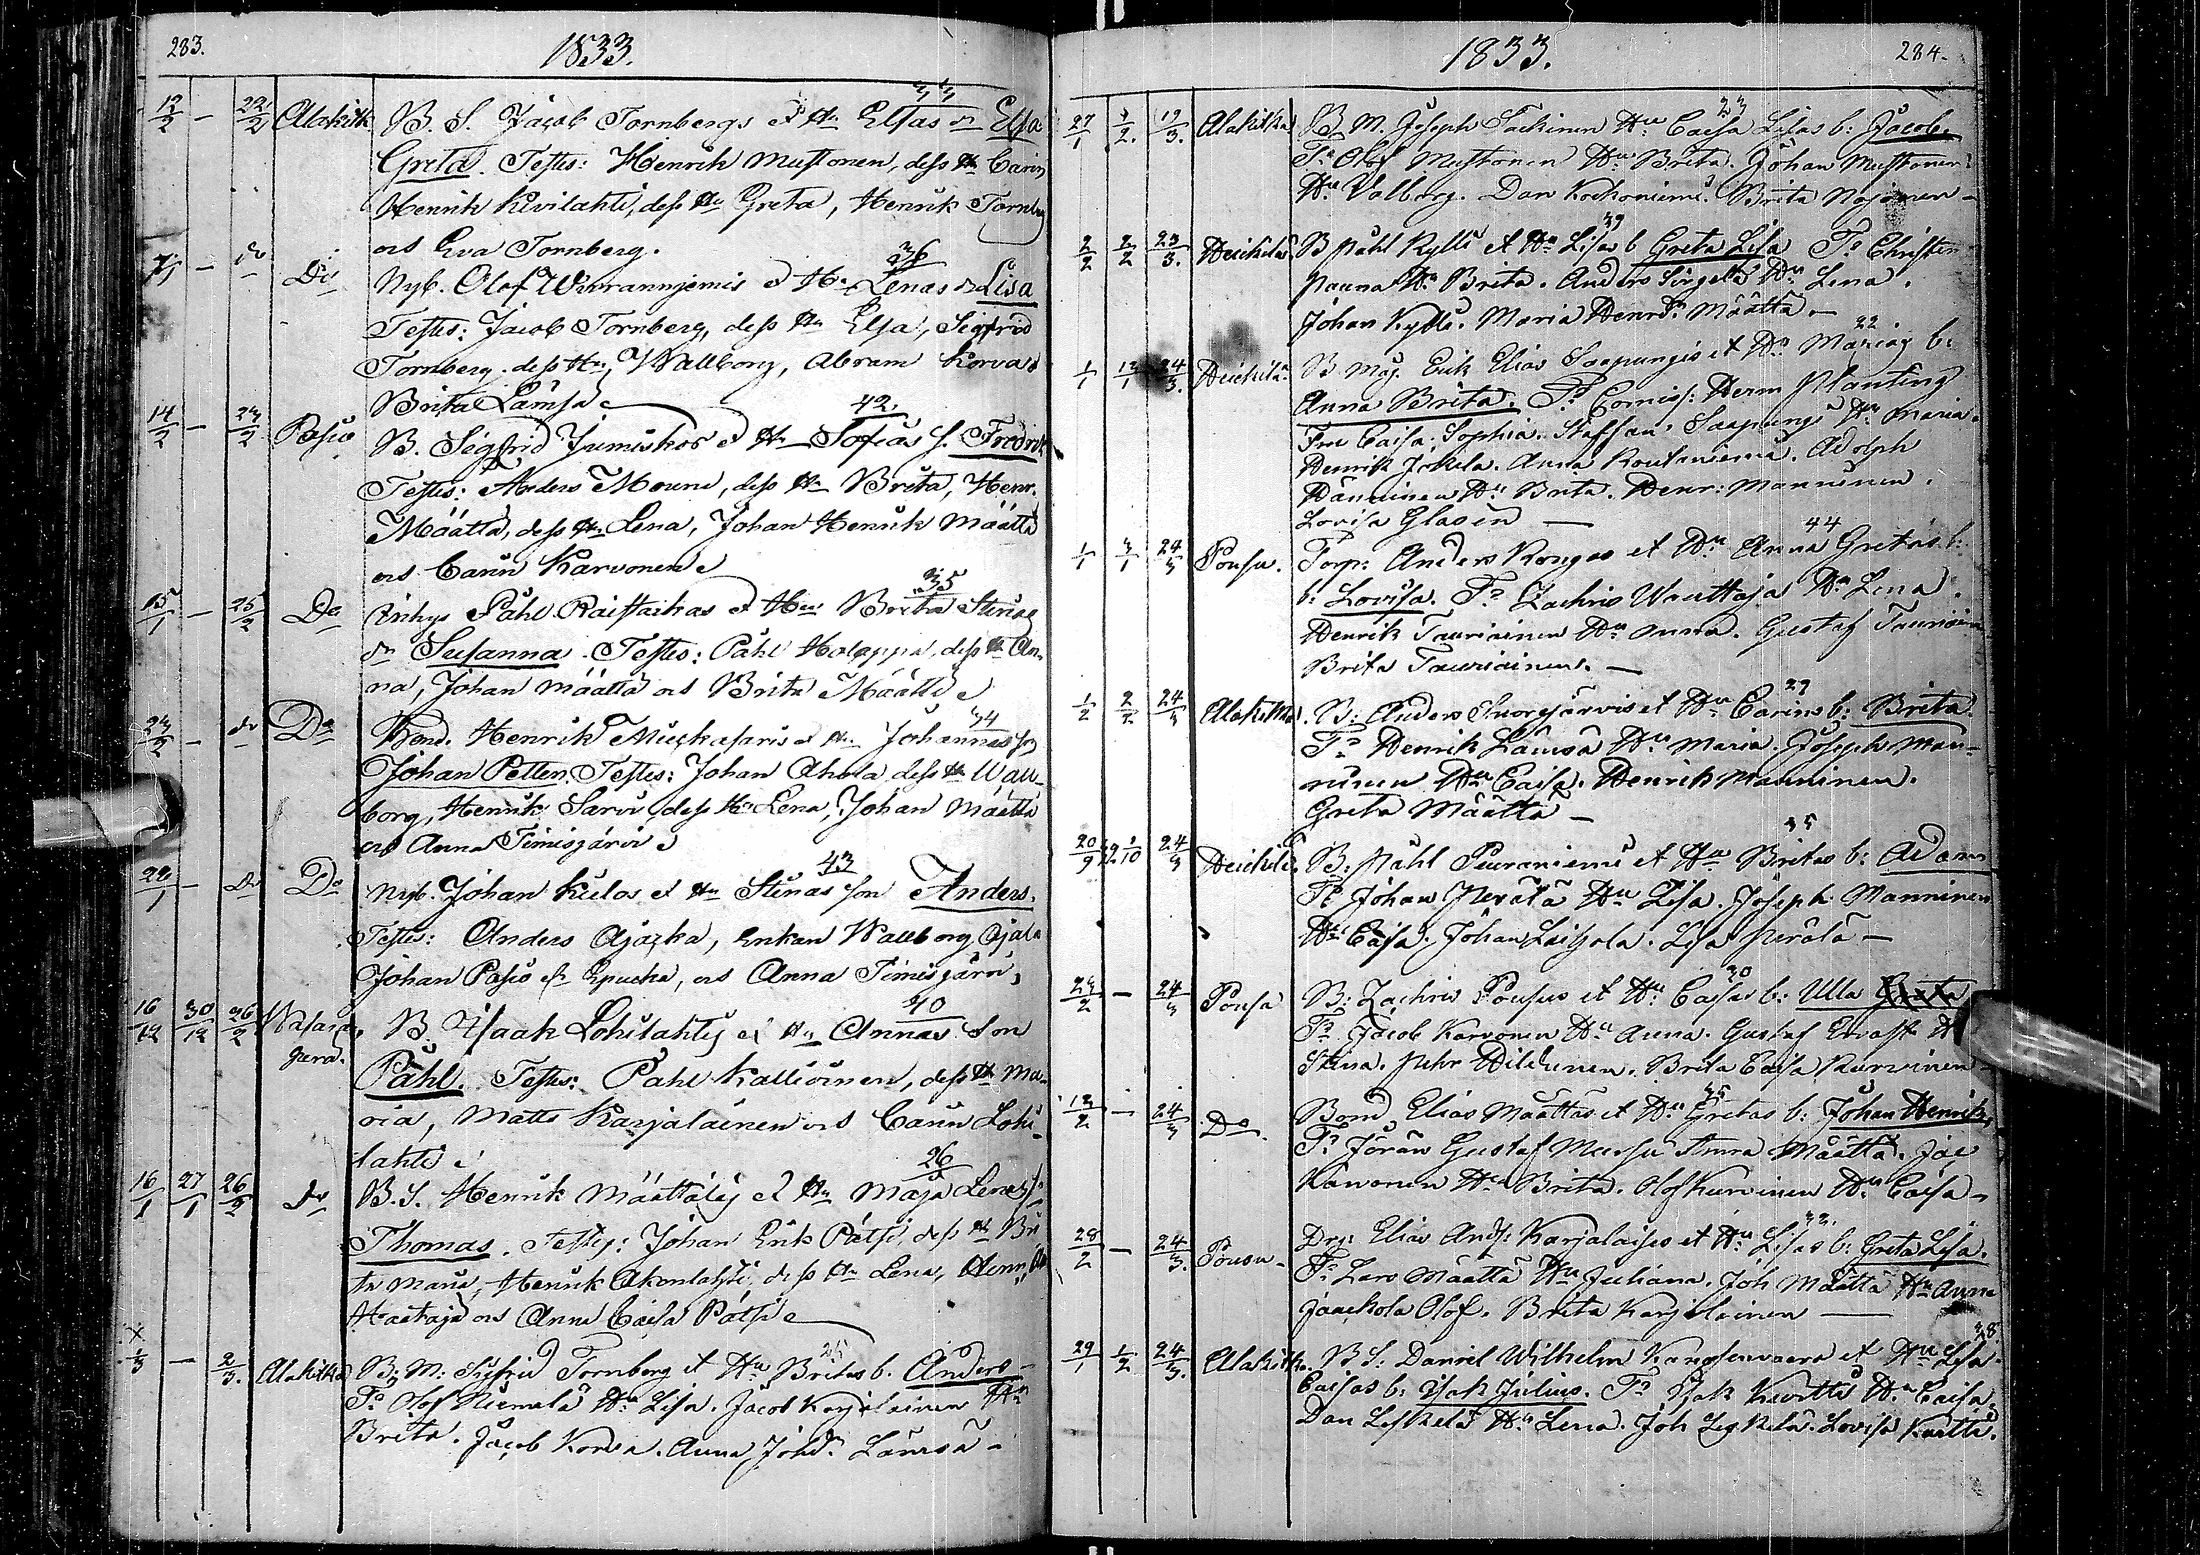 283.
1833.
12/2 — 22/2 Alakitk B. S. Jacob Tornbergs et Hu Elsas dr Elsa 33
Greta. Testes: Henrik Mustonen, dess Hu Carin
Henrik Kivilahti, dess Hu Greta, Henrik Tornberg
och Eva Tornberg.
— do Do Nyb. Olof Wirranniemis et Hu Lenas dr Lisa 36
Testes: Jacob Tornberg, dess Hu Elsa, Sigfrid
Tornberg. dess Hu, Wallborg, Abram Korva
Brita Lämsä
14/2 — 23/2 Posio B. Sigfrid Jumiskos et Hu Sofias s. Fredrik 42.
Testes: Anders Mourn, dess Hu Brita, Henr.
Määttä, dess Hu Lena, Johan Henrik Määttä
och Carin Karvonen
15/1 — 25/2 Do Inhys Påhl Raistaikas et Hu Brita Stinas 35
dr Susanna. Testes: Påhl Holappa, dess Hu An-
na, Johan Määttä och Brita Määttä
24/2 — do Do Bond. Henrik Muckasaris et Hu Johannas son 34
Johan Petter. Testes: Johan Ahola dess Hu Wall-
borg, Henrik Sarvi dess Hu Lena, Johan Määttä
och Anna Timisjärvi
22/1 — do Do Nyb. Johan Kulos et Hu Stinas son Anders. 43
Testes: Anders Ajaska, Enkan Wallborg Ajala
Johan Posio och Anna Timisjärvi,
16/12 30/12 26/2 Wasara- B. Isaak Lohilahtis et Hu Annas Son 40
perä. Påhl. Testes: Pahl Kallioinen, dess Hu Ma-
ria, Matts Karjalainen och Carin Lohi-
lahti
16/1 27/1 26/2 do B. S. Henrik Määttäläs et Hu Maja Lenas s. 26
Thomas. Testes: Johan Erik Pätsi, dess Hu Bri
ta Maria, Henrik Akonlahti, dess Hu Lena,
Haataja och Anna Caisa Pätsi
x 1/3 — 2/3. Alakitka B. M: Sigfrid Tornberg et Hu Britas b. Anders
Ts Olof Niemelä Hu Lisa. Jacob Karjalainen Hu
Brita. Jacob Korva. Anna Johd. Lämsä —
1833.
284.
27/1 3/2. 17/3. Alakitka B M. Joseph Tackinen Hu Caisa Lisas b: Jacob. 23
Ts Olof Mustonen Hu Brita. Johan Mustonen
Hu Valborg. Dan Korkoniemi. Brita Nojonen —
2/2 2/2 23/3. Heickilä B Påhl Kylli et Hu Lisas b Greta Lisa Ts Christer 39
Pauna Hu Brita. Anders Sirgelä Hu Lena.
Johan Kylli. Maria Henrsd. Määttä —
1/1 13/1 24/3. Heickilä B Mag. Erik Elias Saapungis et Hu Marias b: 22
Anna Brita. Ts Comiss: Herm Planting
Fru Caisa Sophia. Staffan Saapungi Hu Maria.
Henrik Jokela. Anna Routaniemi. Adolph
Hänninen Hu Brita. Henr: Manninen.
Lovisa Glasén —
1/1 3/1 24/3 Pousu. Torp: Anders Kongas et Hu Anna Gretas b: 44
b: Lovisa. Ts Zachris Wauttaja Hu Lena.
Henrik Tauriainen Hu Anna. Gustaf Tauriainen
Brita Tauriainen. —
1/2 2/2 24/3 Alakitka. B: Anders Suorajärvis et Hu Carins b: Brita. 29
Ts Henrik Lämsä Hu Maria. Joseph Man-
ninen Hu Caisa. Henrik Manninen.
Greta Määttä —
20/9 29 1/10 24/3 Heickilä B. Påhl Peuraniemi et Hu Britas b: Adam 35
Ts Johan Perälä Hu Lisa. Joseph Manninen
Hu Caisa. Johan Laitsola. Lisa Perälä —
24/2 — 24/3 Pousu B: Zachris Pousus et Hu Caisas b: Ulla Greta 30
Ts Jacob Karvonen Hu Anna. Gustaf Ervast Hu
Stina. Pehr Hildunen. Brita Caisa Kurvinen —
13/2 — 24/3 Do. Bond Elias Määttäs et Hu Gretas b: Johan Henrik, 35
Ts Jöran Gustaf Mursu Anna Määttä. Jac
Karvonen Hu Brita. Olof Kurvinen Hu Caisa —
28/2 — 24/3. Pousu — Drg: Elias Ands: Karjalaises et Hu Lisas b: Greta Lisa. 32.
Ts Lars Määttä Hu Juliana. Joh Määttä Hu Anna
Jaackola Olof. Brita Karjalainen —
29/1 1/2 24/3. Alakitka. B S: Daniel Wilhelm Kangsenvaara et Hu Lisa 38
Caisas b: Isak Julius. Ts Isak Kurtti Hu Caisa.
Dan Leskelä Hu Lena. Joh Leskelä. Lovisa Kurtti.